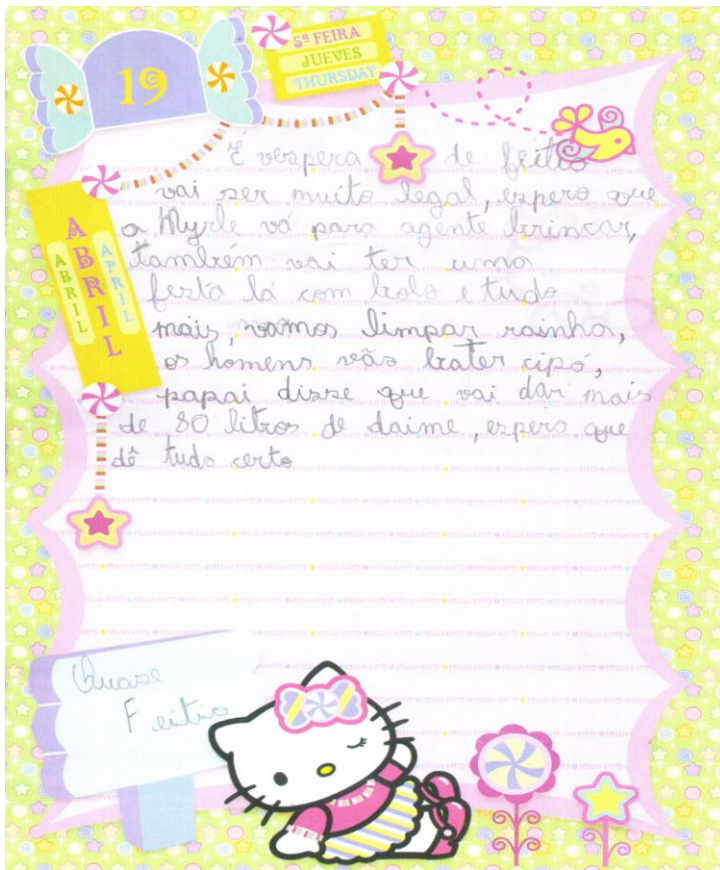 19
5ª FEIRA
JUEVES
THURSDAY
ABRIL
ABRIL
APRIL
É vespera de feitio
vai ser muito legal, espero que
a Myrle vá para agente brincar,
também vai ter uma
festa lá com bolo e tudo
mais, vamos limpar rainha,
os homens vão bater cipó,
papai disse que vai dar mais
de 80 litros de daime, espero que
dê tudo certo
Quase
Feitio